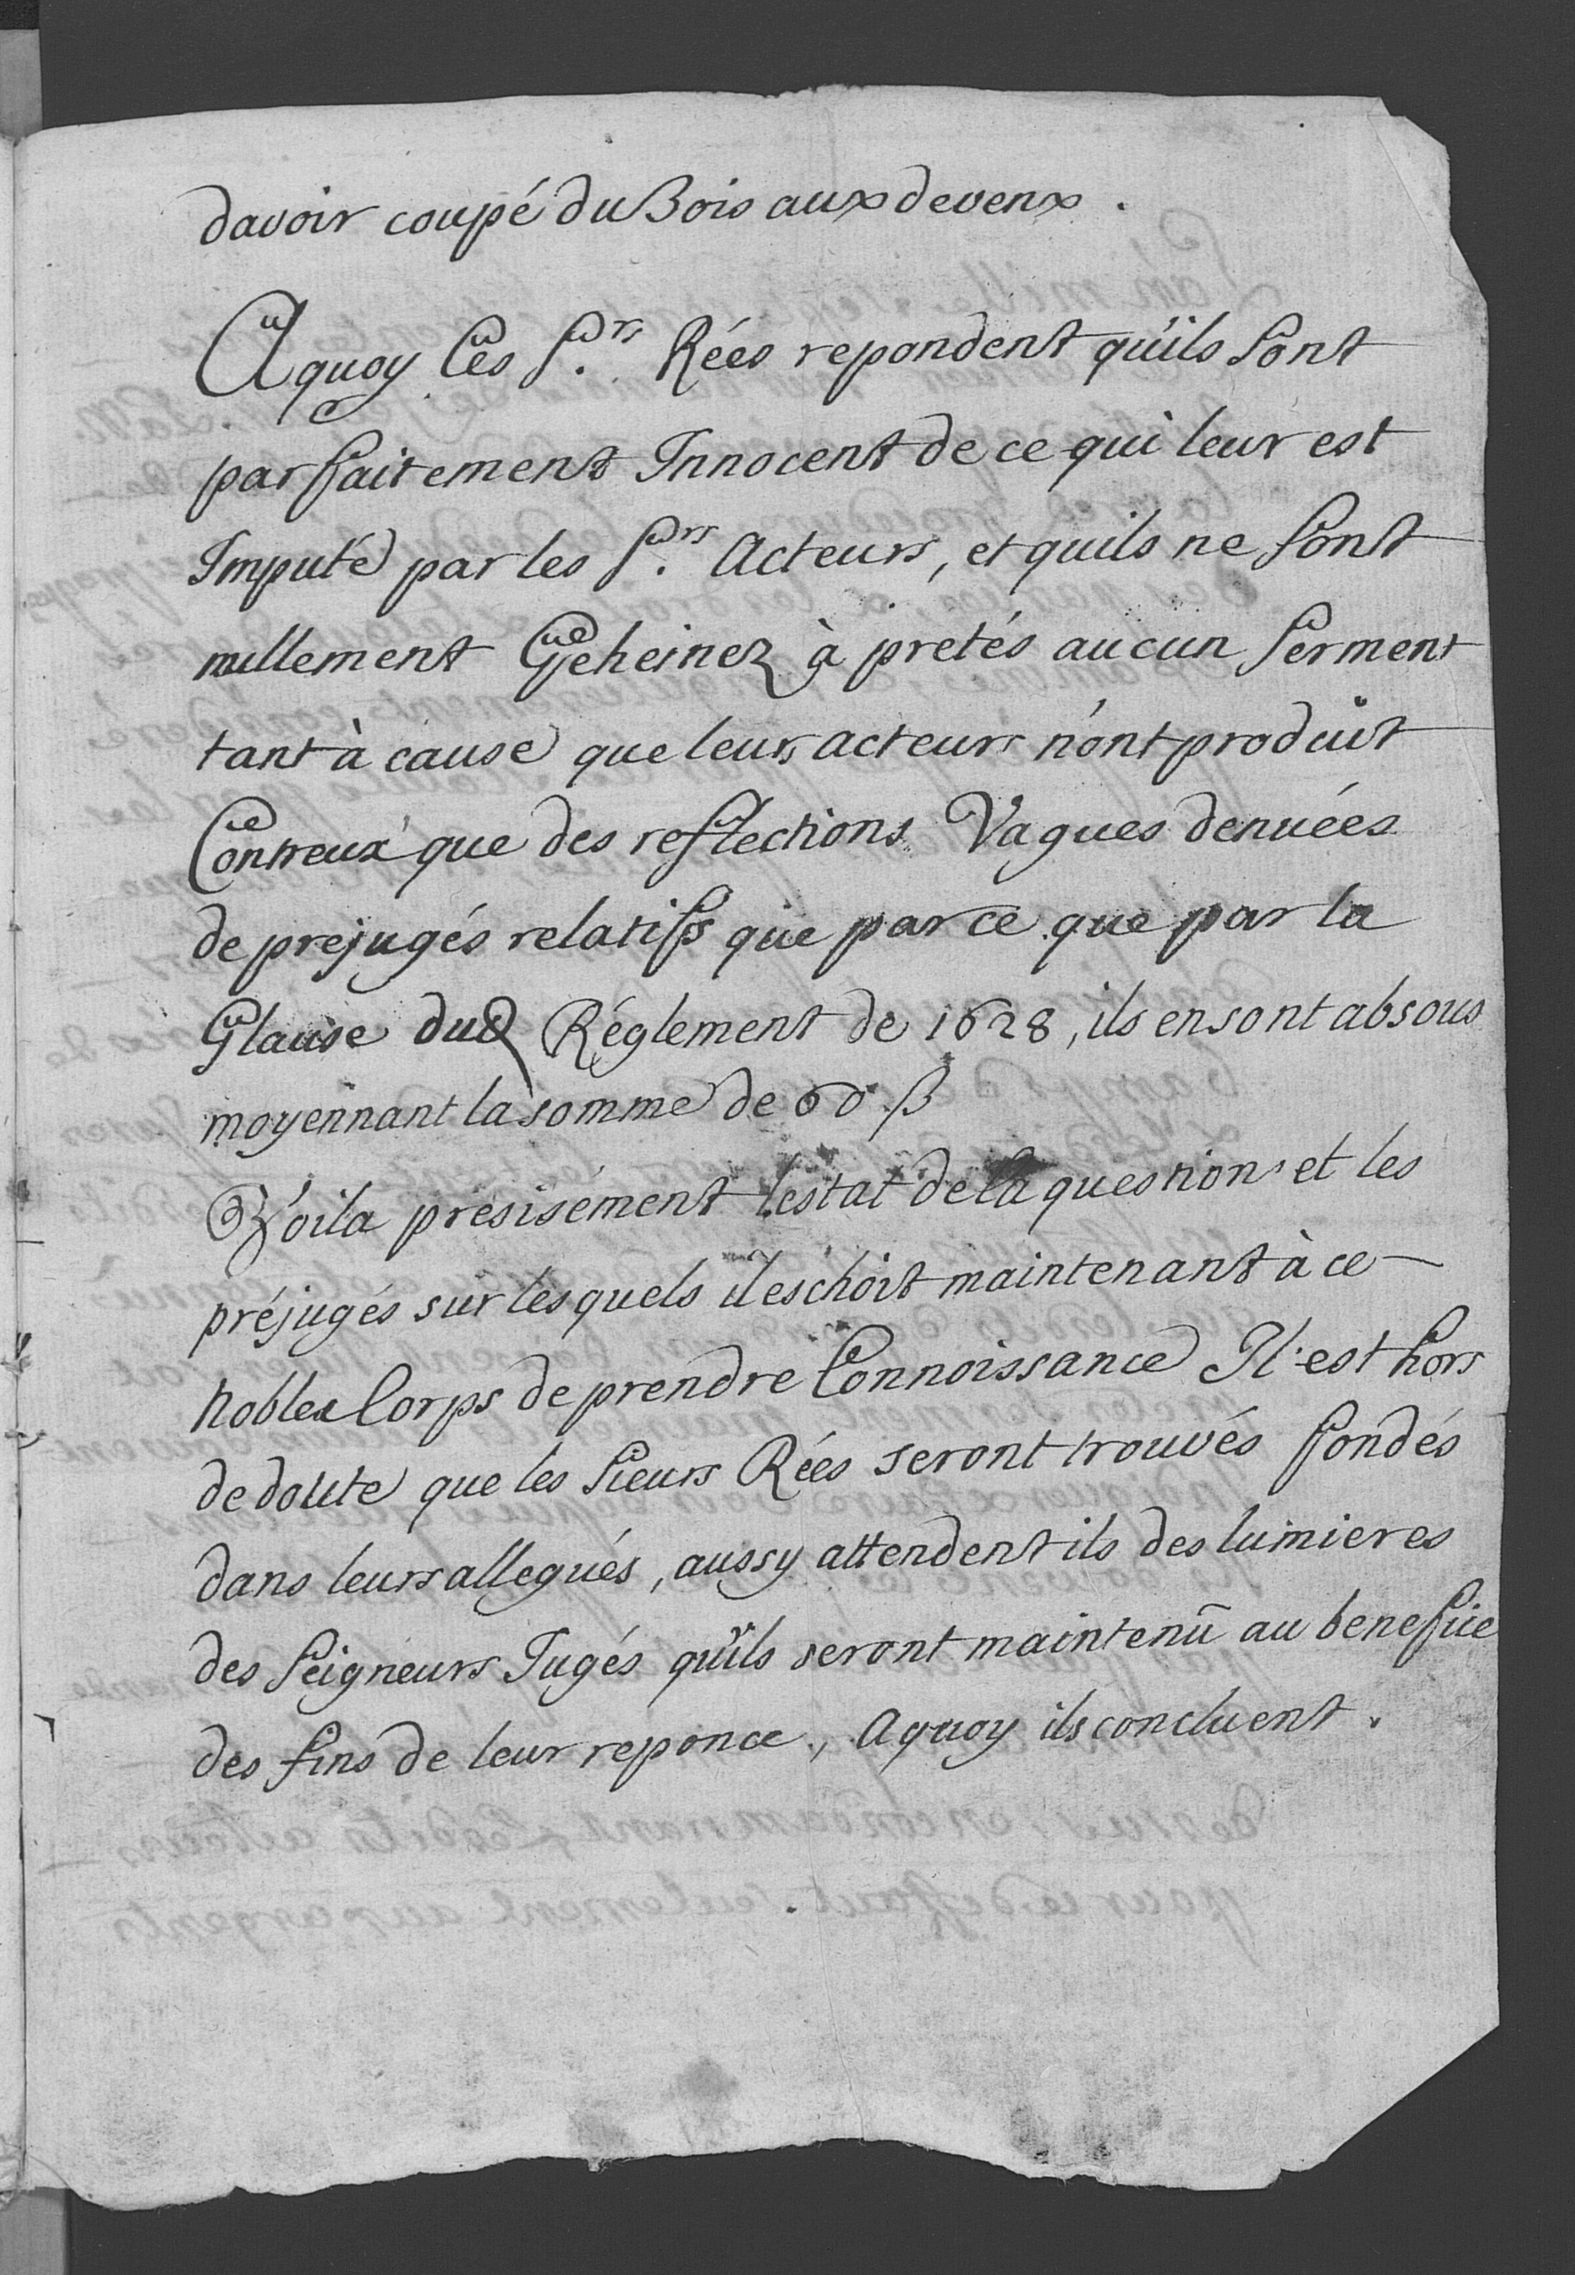 davoir coupé du Bois aux devenx.
Aquoy Ces Srs. Rées repondent quils sont
parfaitement Innocent de ce qui leur est
Imputé par les Srs. Acteurs, et quils ne sont
nullement Geheinez à pretés aucun serment
tant à cause que leurs acteurs n'ont produit
Contreux que des reflections Vagues denuées
de prejugés relatifs que parce que par la
Glause dud Réglement de 1628, ils en sont absous
moyennant la somme de 60 ß
Voila presisément lestat de la question et les
préjugés sur lesquels il eschoit maintenant à ce
Nobles Corps de prendre Connoissance Il est hors
de doute que les Sieurs Rées seront trouvés fondés
dans leurs allegués, aussy attendent ils des lumieres
des Seigneurs Jugés quils seront maintenû au benefice
des fins de leur reponce, Aquoy ils concluent.